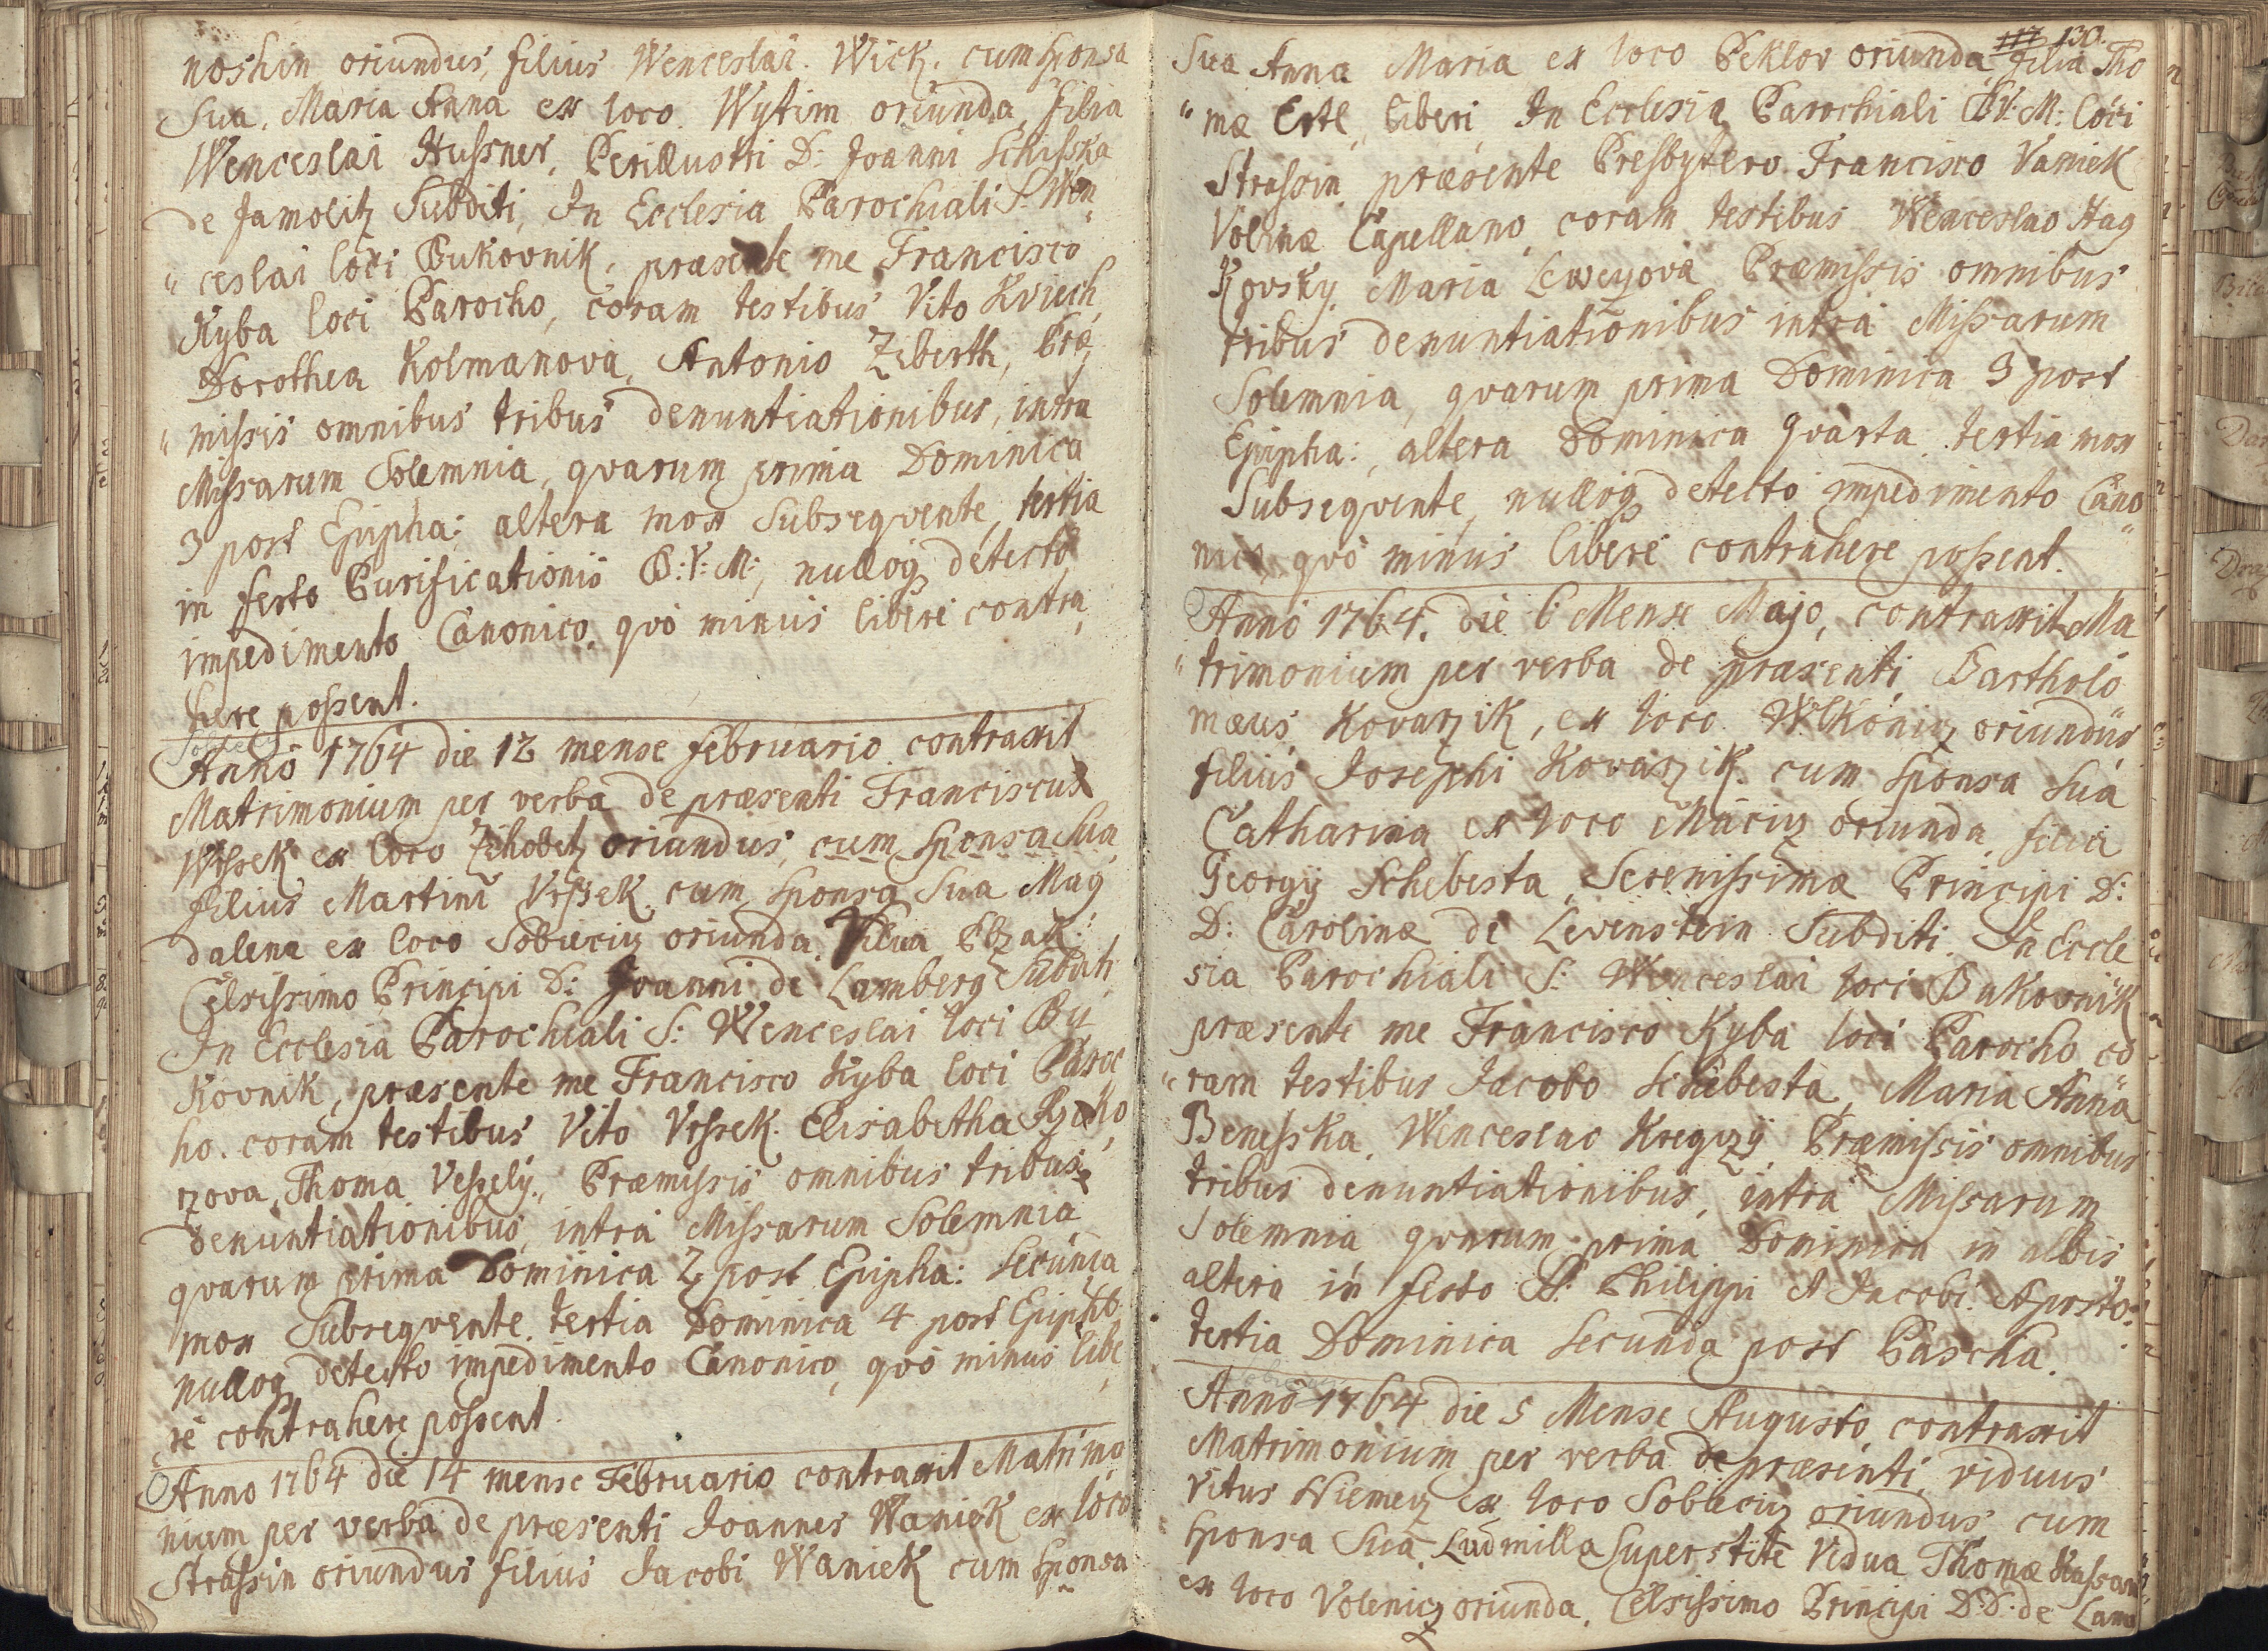 noshin oriundus, filius Wenceslai. Wick. cum sponsa
Sua. Maria Anna ex loco. Wytim oriunda, filia
Wenceslai Hussner, Perillustri D: Joanni Schisska
de Jamolitz Subditi, In Ecclesia Parochiali S: Wen
" ceslai loci Bukovnik, praesente me Francisco
Kyba loci Parocho, coram testibus Vito Kriech,
Dorothea Kolmanova, Antonio Ziberth, Prae
" missis omnibus tribus denuntiationibus, intra
Missarum Solemnia, qvarum prima Dominica
3 post Epipha: altera mox Subseqvente, tertia
in festo Purificationis B: V: M:, nulloq detecto
impedimento Canonico, qvo minus liberè contra,
here possent.
Anno 1764 die 12 mense februario. contraxit
Matrimonium per verba de praesenti Franciscus
Wrssek ex loco Zihobetz oriundus, cum Sponsa Sua
filius Martini Vrssek. cum Sponsa Sua Mag
dalena ex loco Sobiecitz oriunda. filia
Celsissimo Principi D: Joanni de Lamberg Subditi
In Ecclesia Parochiali S: Wenceslai loci Bu
Kovnik, praesente me Francisco Kyba loci Paroc
ho. coram testibus Vito Vrssek. Elisabetha
Thoma Vessely, Praemissis omnibus tribus
denuntiationibus, intra Missarum Solemnia
qvarum prima Dominica 2 post Epipha: Secunda
mox Subseqvente, tertia Dominica 4 post Epipha:
nulloq detecto impedimento Canonico, qvo minus libe,
rè contrahere possent.
Anno 1764 die 14 mense Februario contraxit Matrimo
nium per verba de praesenti Joannes Waniek ex loco
Strassin oriundus filius Jacobi Waniek cum Sponsa
130.
Sua Anna Maria ex loco Peklov oriunda, filia Tho
" mae Ertl, liberi, In Ecclesia Parochiali B: V: M: loci
Strassin, praesente Presbytero Francisco Vaniek
Volinae Capellano, coram testibus Wenceslao Hag
Kovsky. Maria Praemissis omnibus
tribus denuntiationibus intra Missarum
Solemnia, qvarum prima Dominica 3 post
Epipha:, altera Dominica qvarta, tertia mox
Subseqvente, nulloq detecto impedimento Cano
nico, qvo minus liberè contrahere possent.
Anno 1764. die 6 Mense Majo, contraxit Ma
" trimonium per verba de praesenti, Bartholo
maeus Kovarzik, ex loco. Wlkonitz oriundus
filius Josephi Kovarzik. cum Sponsa Sua
Catharina ex loco Macitz oriunda, filia
Georgij Schebesta, Serenissimae Principi D:
D: Carolinae de Levinstein Subditi. In Eccle
sia Parochiali S: Wenceslai loci Bukovnik
praesente me Francisco Kyba loci Parocho co
" ram testibus Jacobo Schebesta, Maria Anna
Benesska, Wenceslao Kregczy Praemissis omnibus
tribus denuntiationibus, intra Missarum
Solemnia, qvarum prima Dominica in albis
altera in festo S: Philippi et Jacobi. Aposto:
tertia Dominica Secunda post Pascha.
Anno 1764 die 5 Mense Augusto, contraxit
Matrimonium per verba de praesenti, viduus
Vitus Niemetz ex loco Sobiecitz oriundus cum
Sponsa Sua, Ludmilla Superstite Vidua Thomae
ex loco Volenitz oriunda, Celsissimo Principi D: D: de Lam